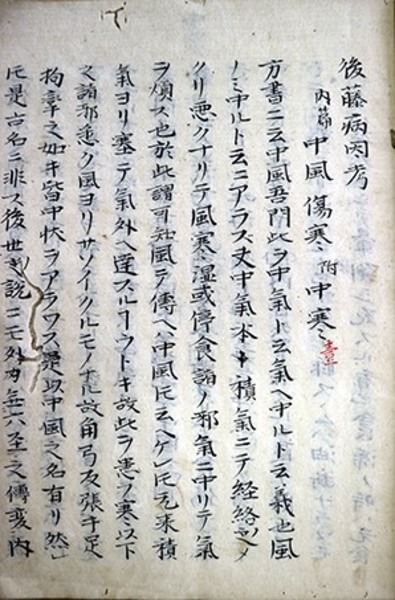 後藤病因考
内篇 中風 傷寒 附 中寒
方書ニ云中風吾門此ヲ中氣ト云氣ヘ中ルト云義也風
ノミ中ルト云ニアラス中氣本積氣ニテ経絡メ
クリ悪クナリテ風寒湿或停食諸ノ邪氣ニ中リテ氣
ヲ煩ス也於此謂可知風ヲ傳ヘ中風ト云ヘケレ𪜈元来積
氣ヨリ塞テ氣外ヘ達スルヿウトキ故此ヲ悪寒以下
之諸邪悉ク風ヨリサソイクルモノナル故角弓反張手足
拘挛之如キ皆中状ヲアラワス是以中風之名有リ然レ
𪜈是古名ニ非ス後世説ニモ外六至之傳変内